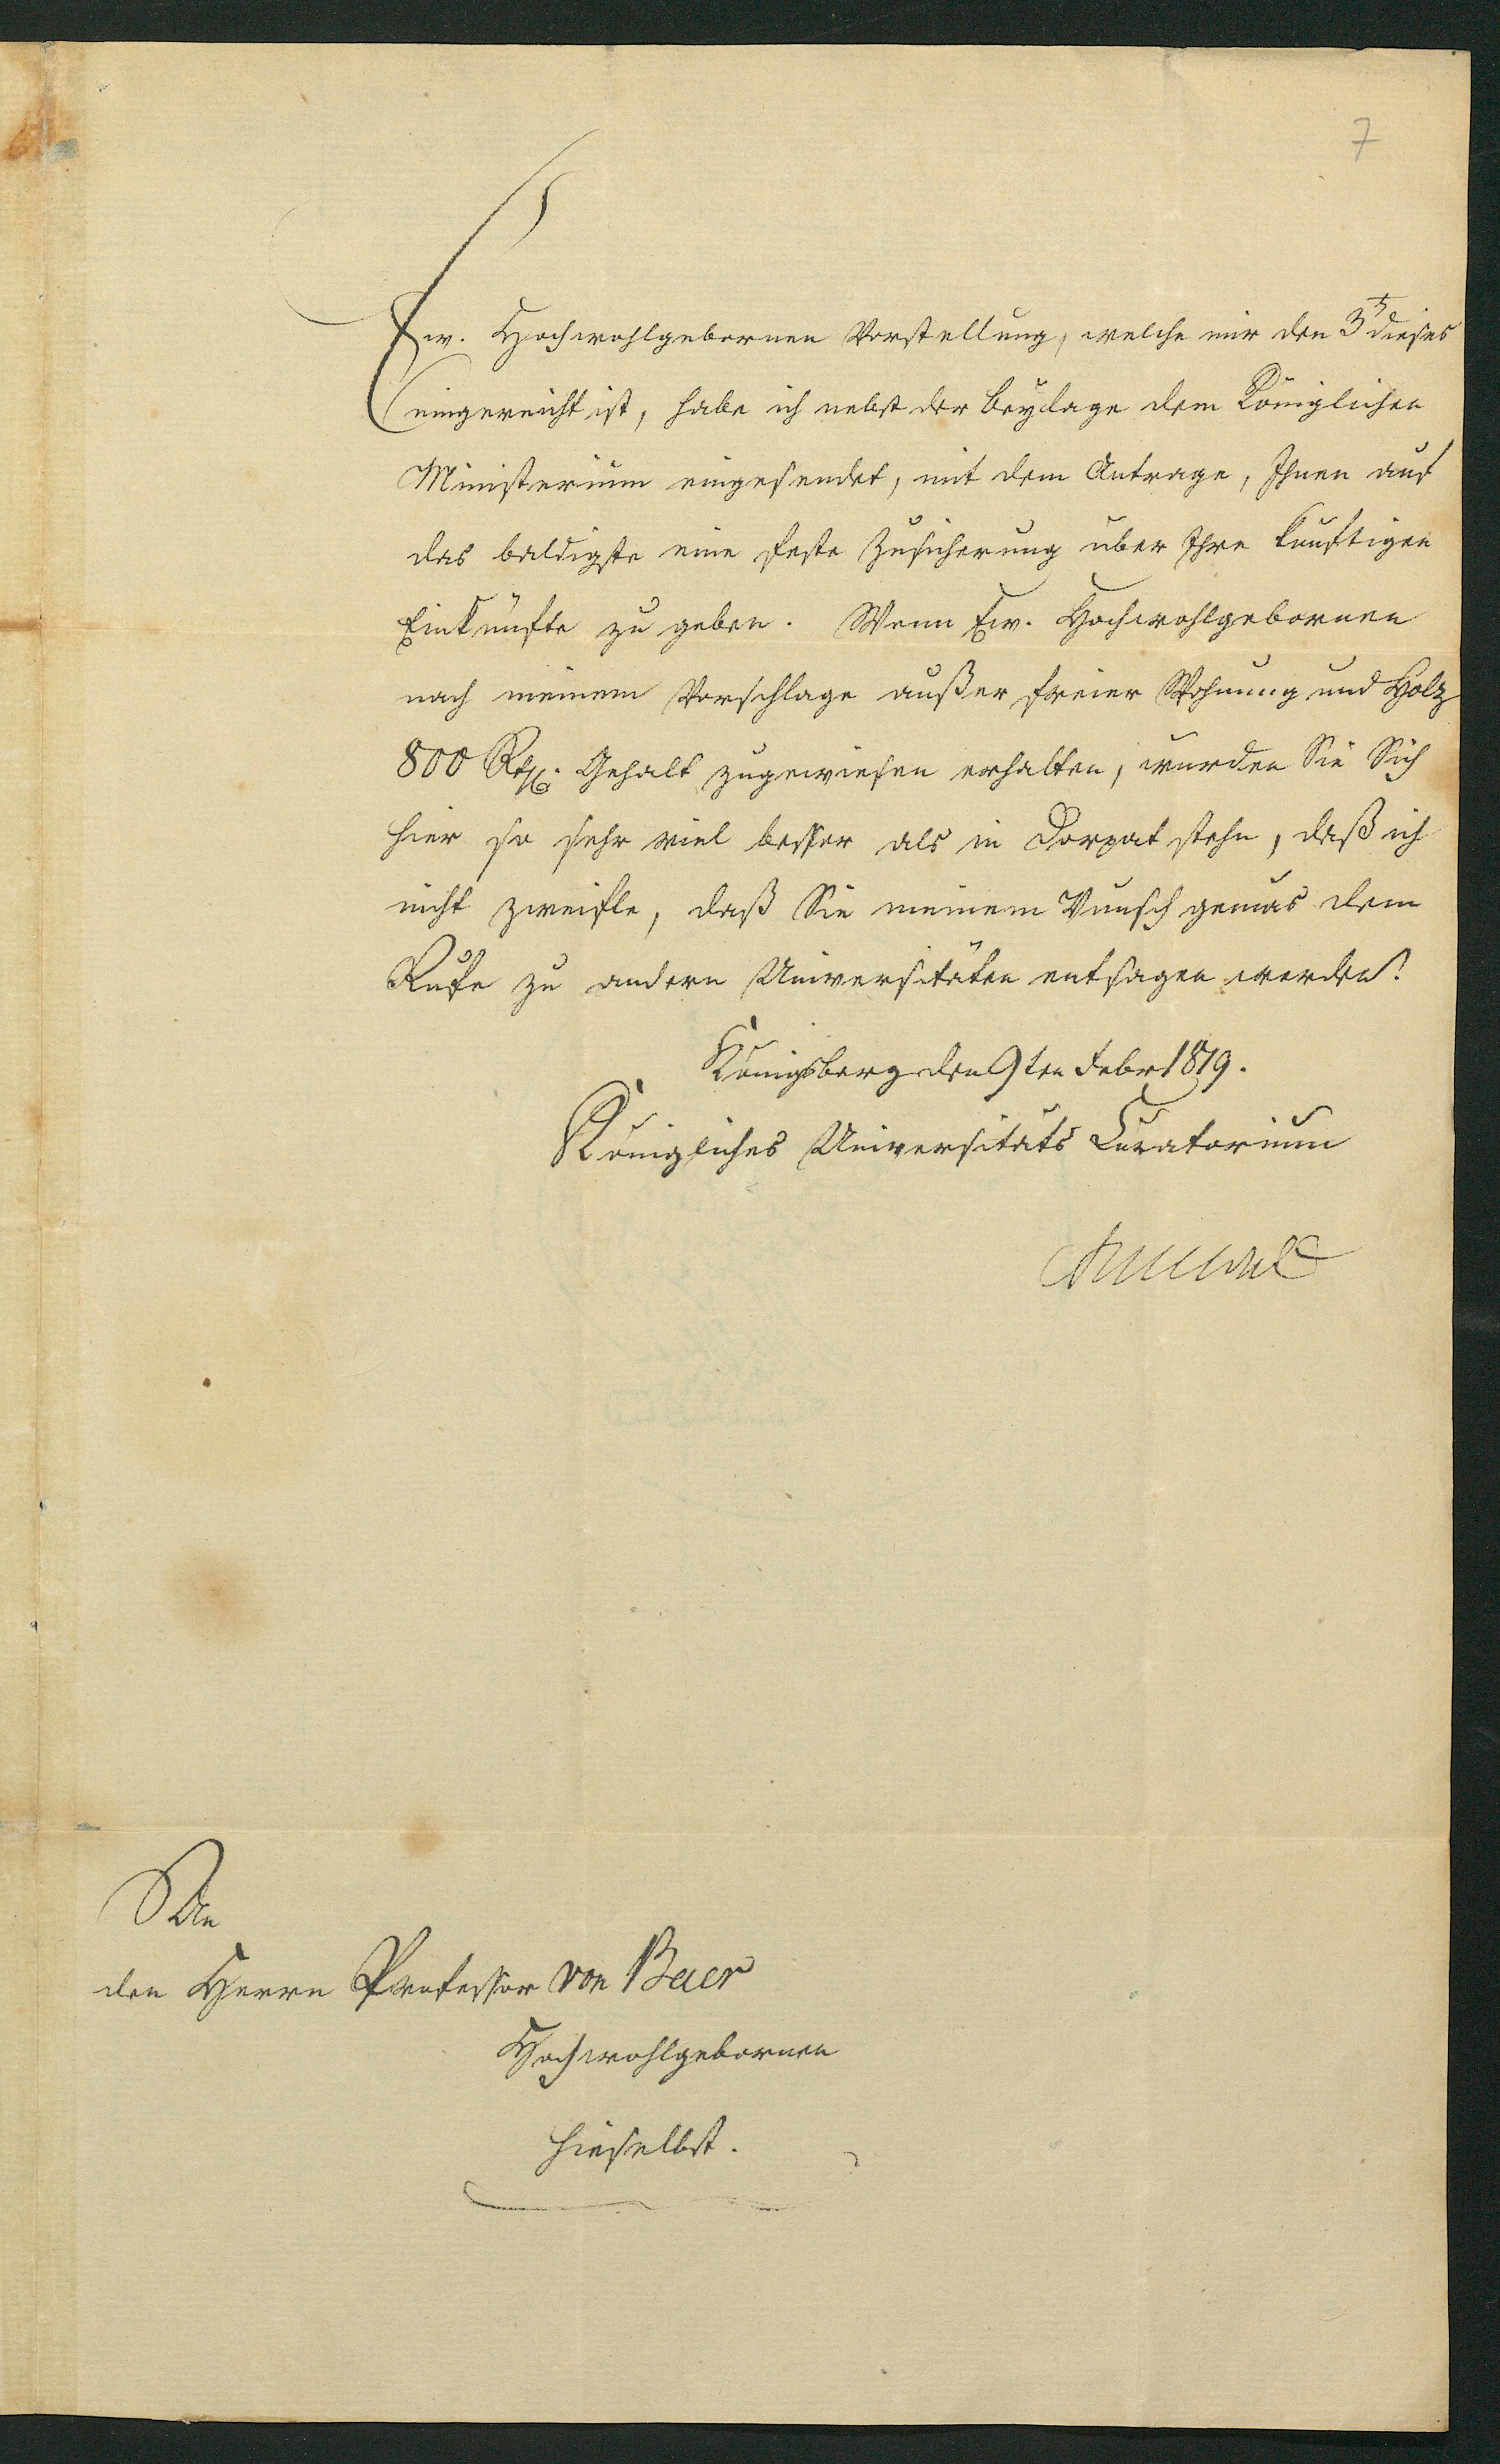 7
Ew. Hochwohlgebornen Vorstellung, welche mir den 3t dieses
eingereicht ist, habe ich nebst der Beylage dem Königlichen
Ministerium eingesendet, mit dem Antrage, Ihnen auf
das baldigste eine feste Zusicherung über Ihre künftigen
Einkünfte zu geben. Wenn Ew. Hochwohlgebornen
nach meinem Vorschlage außer freier Wohnung und Holz
800 Rth. Gehalt zugewiesen erhalten, wurden Sie Sich
hier so sehr viel besser als in Dorpat stehn, daß ich
nicht zweifle, daß Sie meinem Wunsch gemäs dem
Rufe zu andern Universitäten entsagen werden.
Königsberg den 9ten Febr 1819.
Königliches Universitäts Curatorium
An
den Herrn Professor von Baer
Hochwohlgebornen
hieselbst.